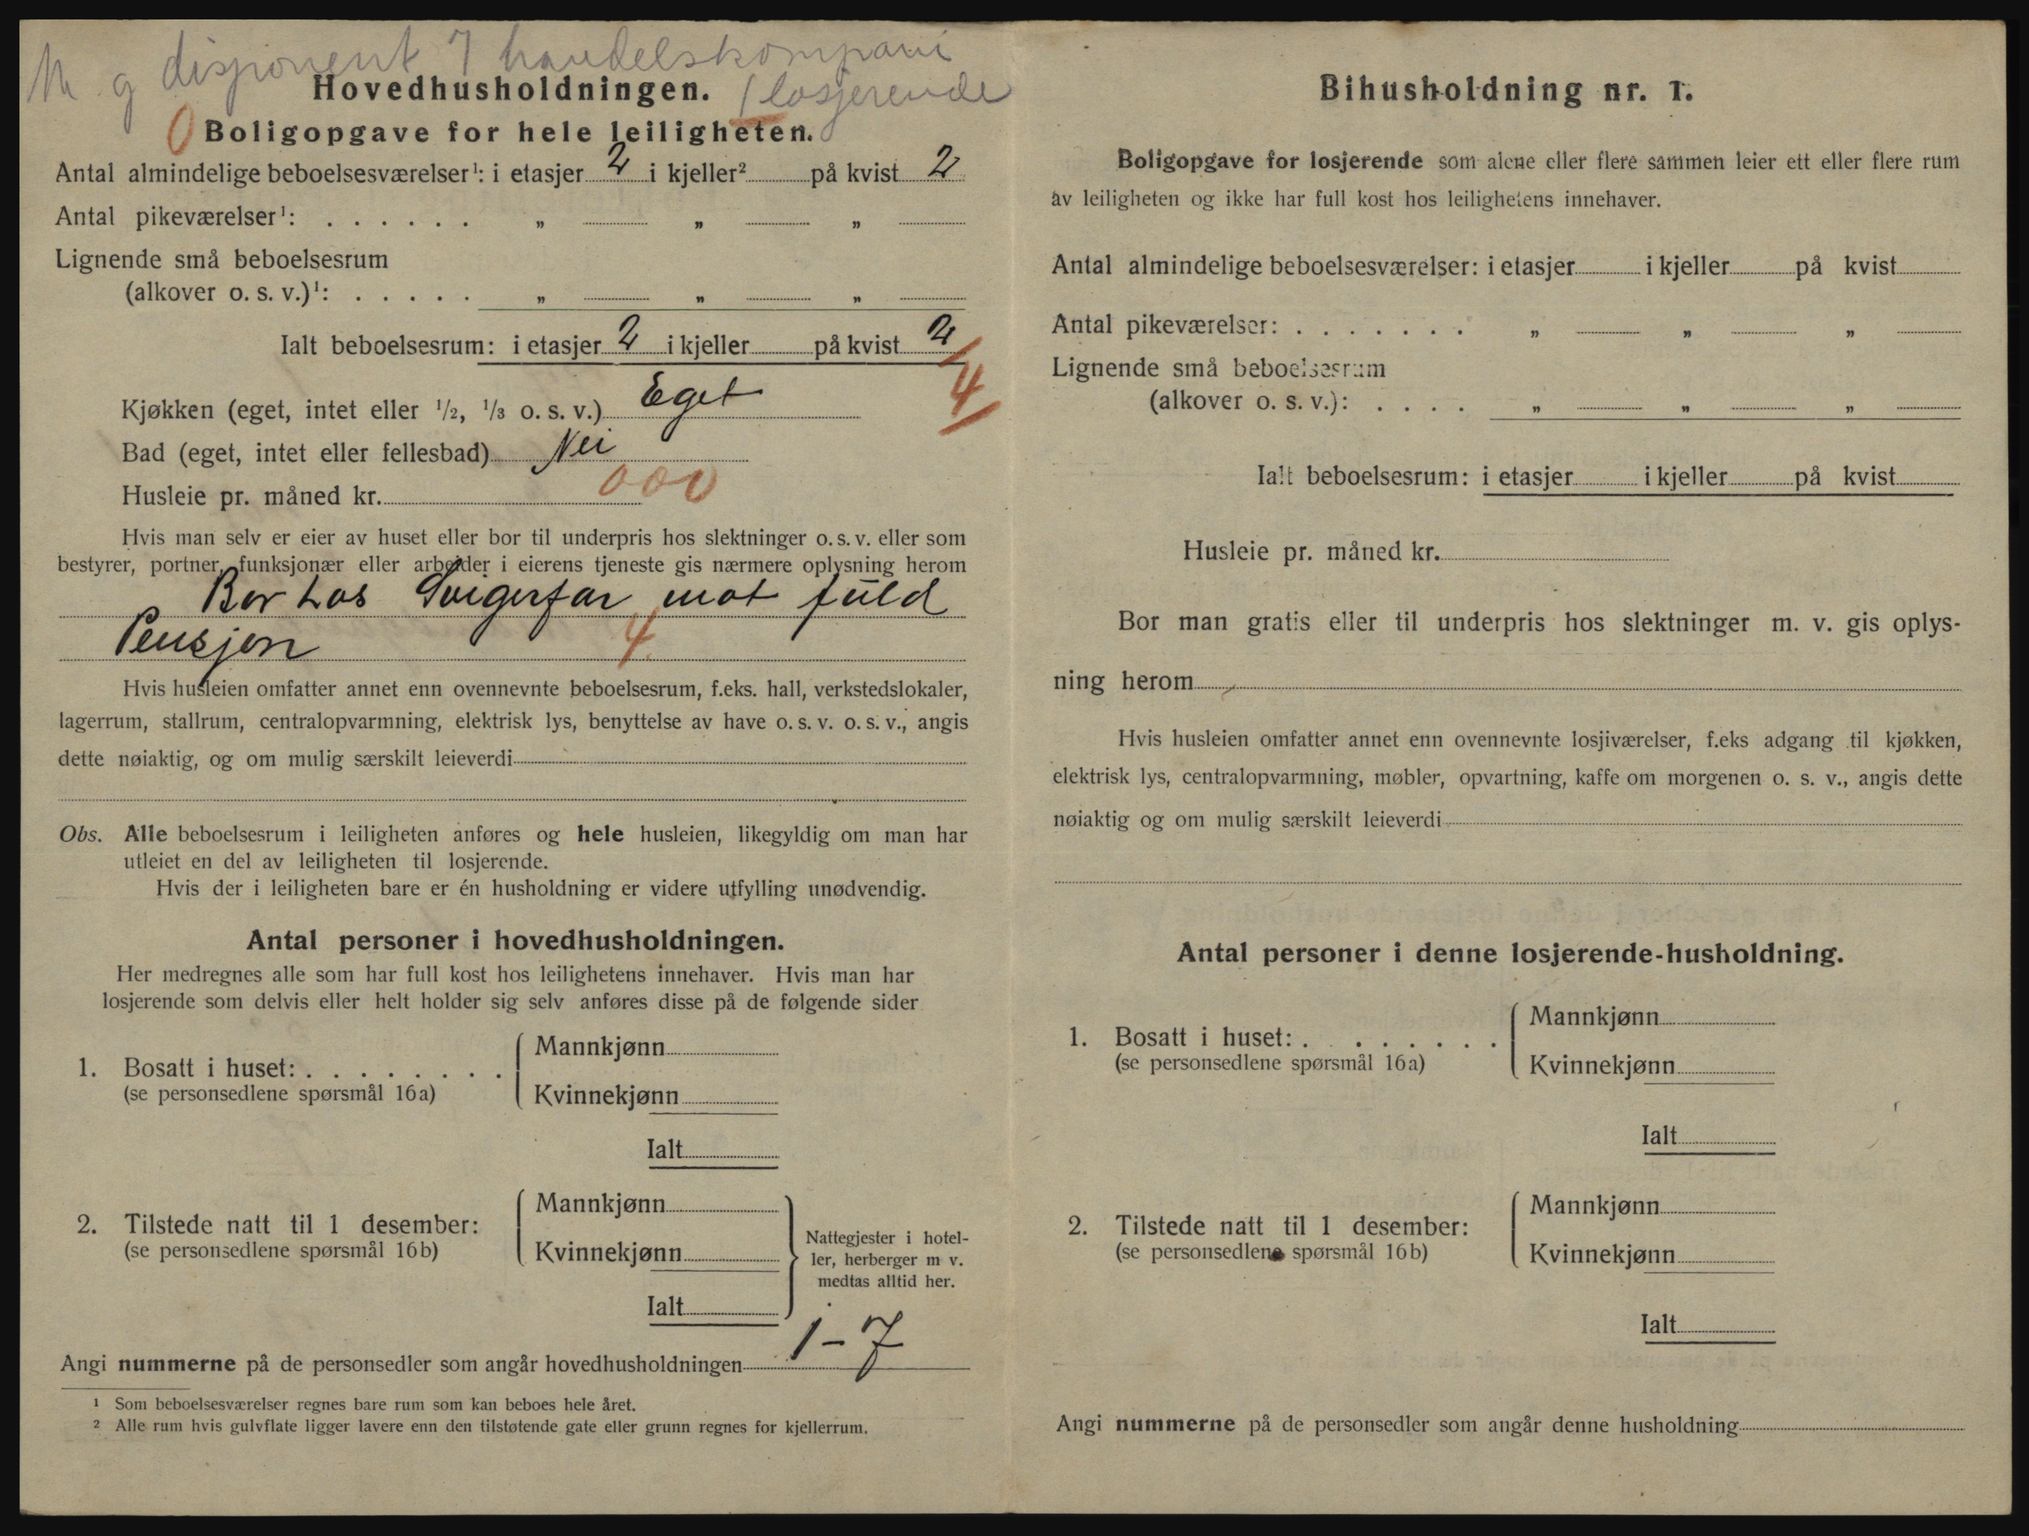 M g disponent 7 handelskompani
Hovedhusholdningen. 1 losjerende
0 Boligopgave for hele leiligheten.
Antal almindelige beboelsesværelser¹: i etasjer 2 i kjeller² på kvist 2
Antal pikeværelser¹: . . . . . . „ „ „
Lignende små beboelsesrum
(alkover o. s. v.)¹: . . . . . „ „ „
Ialt beboelsesrum: i etasjer 2 i kjeller på kvist 2
4
Kjøkken (eget, intet eller 1/2, 1/3 o. s. v.) Eget
Bad (eget, intet eller fellesbad) Nei
Husleie pr. måned kr. 000
Hvis man selv er eier av huset eller bor til underpris hos slektninger o. s. v. eller som
bestyrer, portner, funksjonær eller arbeider i eierens tjeneste gis nærmere oplysning herom
Bor hos Svigerfar mot fuld
Pensjon 4
Hvis husleien omfatter annet enn ovennevnte beboelsesrum, f.eks. hall, verkstedslokaler,
lagerrum, stallrum, centralopvarmning, elektrisk lys, benyttelse av have o. s. v. o. s. v., angis
dette nøiaktig, og om mulig særskilt leieverdi
Obs. Alle beboelsesrum i leiligheten anføres og hele husleien, likegyldig om man har
utleiet en del av leiligheten til losjerende.
Hvis der i leiligheten bare er én husholdning er videre utfylling unødvendig.
Antal personer i hovedhusholdningen.
Her medregnes alle som har full kost hos leilighetens innehaver. Hvis man har
losjerende som delvis eller helt holder sig selv anføres disse på de følgende sider
Mannkjønn
1. Bosatt i huset: . . . . . . . .
(se personsedlene spørsmål 16a) Kvinnekjønn
Ialt
Mannkjønn
2. Tilstede natt til 1 desember:
(se personsedlene spørsmål 16b) Kvinnekjønn
Ialt
Nattegjester i hotel-
ler, herberger m v.
medtas alltid her.
Angi nummerne på de personsedler som angår hovedhusholdningen 1-7
¹ Som beboelsesværelser regnes bare rum som kan beboes hele året.
² Alle rum hvis gulvflate ligger lavere enn den tilstøtende gate eller grunn regnes for kjellerrum.
Bihusholdning nr. 1.
Boligopgave for losjerende som alene eller flere sammen leier ett eller flere rum
av leiligheten og ikke har full kost hos leilighetens innehaver.
Antal almindelige beboelsesværelser: i etasjer i kjeller på kvist
Antal pikeværelser: . . . . . . . „ „ „
Lignende små beboelsesrum
(alkover o. s. v.): . . . . „ „ „
Ialt beboelsesrum: i etasjer i kjeller på kvist
Husleie pr. måned kr.
Bor man gratis eller til underpris hos slektninger m. v. gis oplys-
ning herom
Hvis husleien omfatter annet enn ovennevnte losjiværelser, f.eks adgang til kjøkken,
elektrisk lys, centralopvarmning, møbler, opvartning, kaffe om morgenen o. s. v., angis dette
nøiaktig og om mulig særskilt leieverdi
Antal personer i denne losjerende-husholdning.
Mannkjønn
1. Bosatt i huset: . . . . . . . .
(se personsedlene spørsmål 16a) Kvinnekjønn
Ialt
Mannkjønn
2. Tilstede natt til 1 desember:
(se personsedlene spørsmål 16b) Kvinnekjønn
Ialt
Angi nummerne på de personsedler som angår denne husholdning